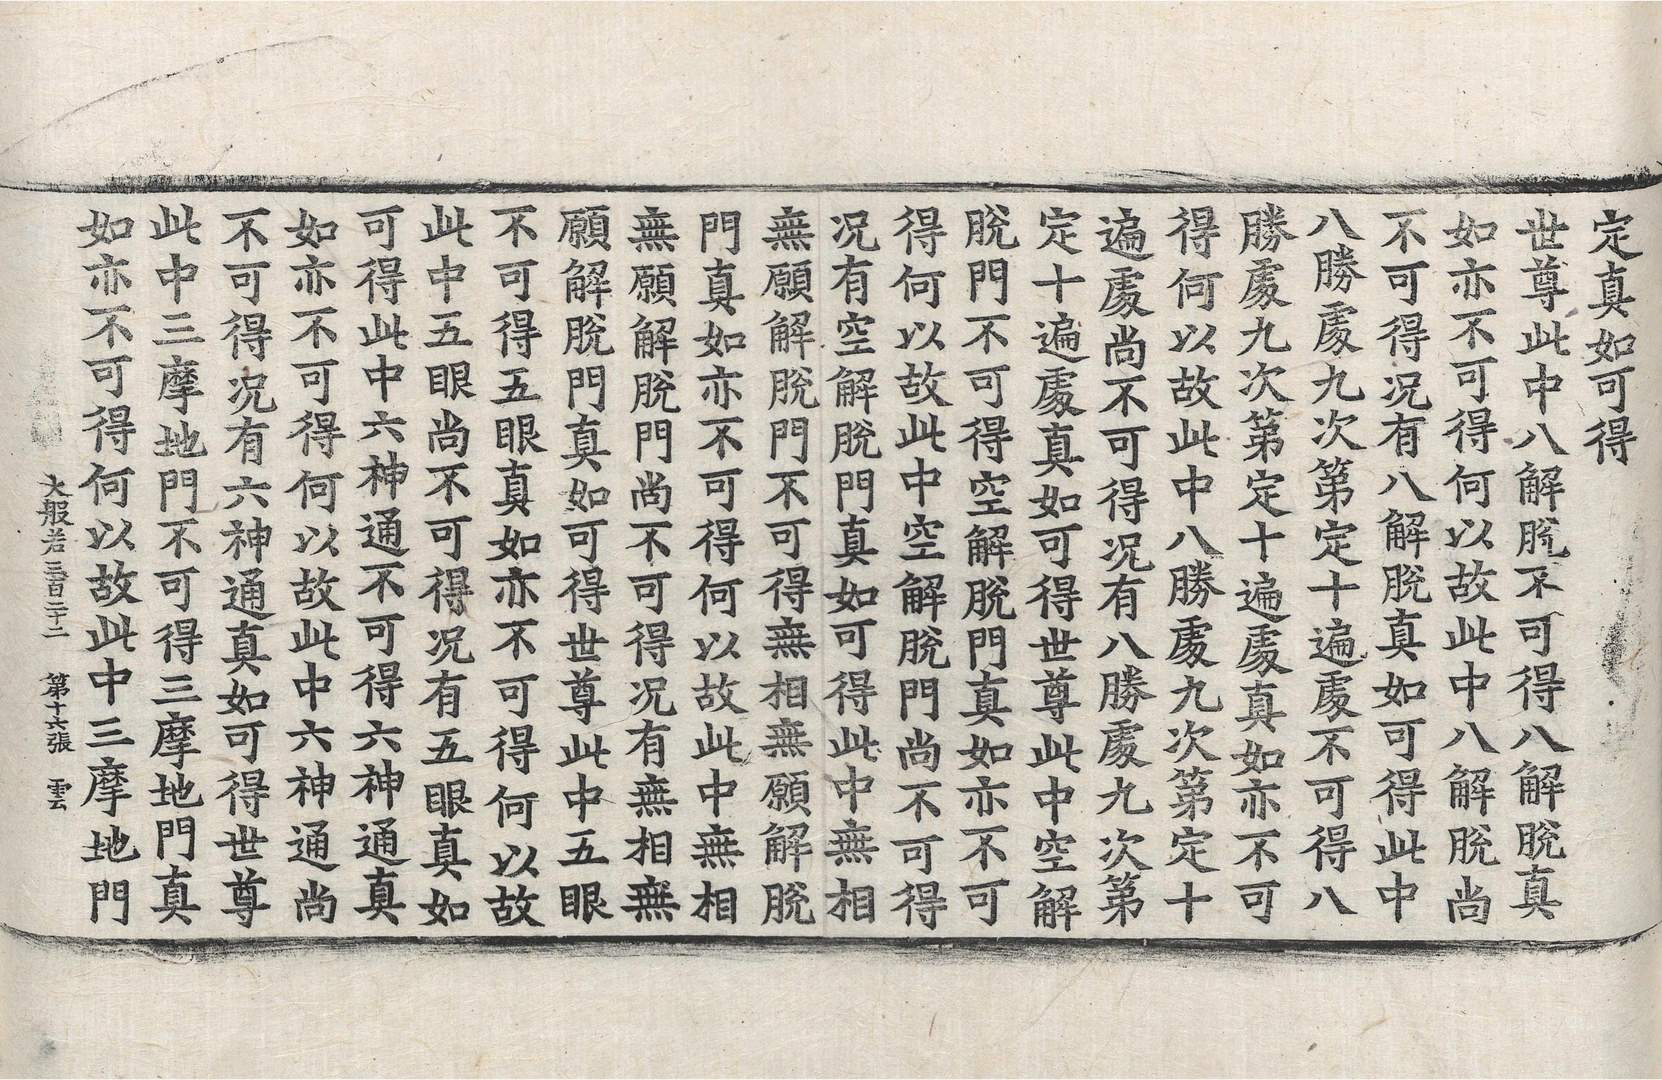 定真如可得
世尊此中八解脫不可得八解脫真
如亦不可得何以故此中八解脫尚
不可得况有八解脫真如可得此中
八勝處九次第定十遍處不可得八
勝處九次第定十遍處真如亦不可
得何以故此中八勝處九次第定十
遍處尚不可得况有八勝處九次第
定十遍處真如可得世尊此中空解
脫門不可得空解脫門真如亦不可
得何以故此中空解脫門尚不可得
况有空解脫門真如可得此中無相
無願解脫門不可得無相無願解脫
門真如亦不可得何以故此中無相
無願解脫門尚不可得况有無相無
願解脫門真如可得世尊此中五眼
不可得五眼真如亦不可得何以故
此中五眼尚不可得况有五眼真如
可得此中六神通不可得六神通真
如亦不可得何以故此中六神通尚
不可得况有六神通真如可得世尊
此中三摩地門不可得三摩地門真
如亦不可得何以故此中三摩地門
大般若三百二十二 第十六張 雲